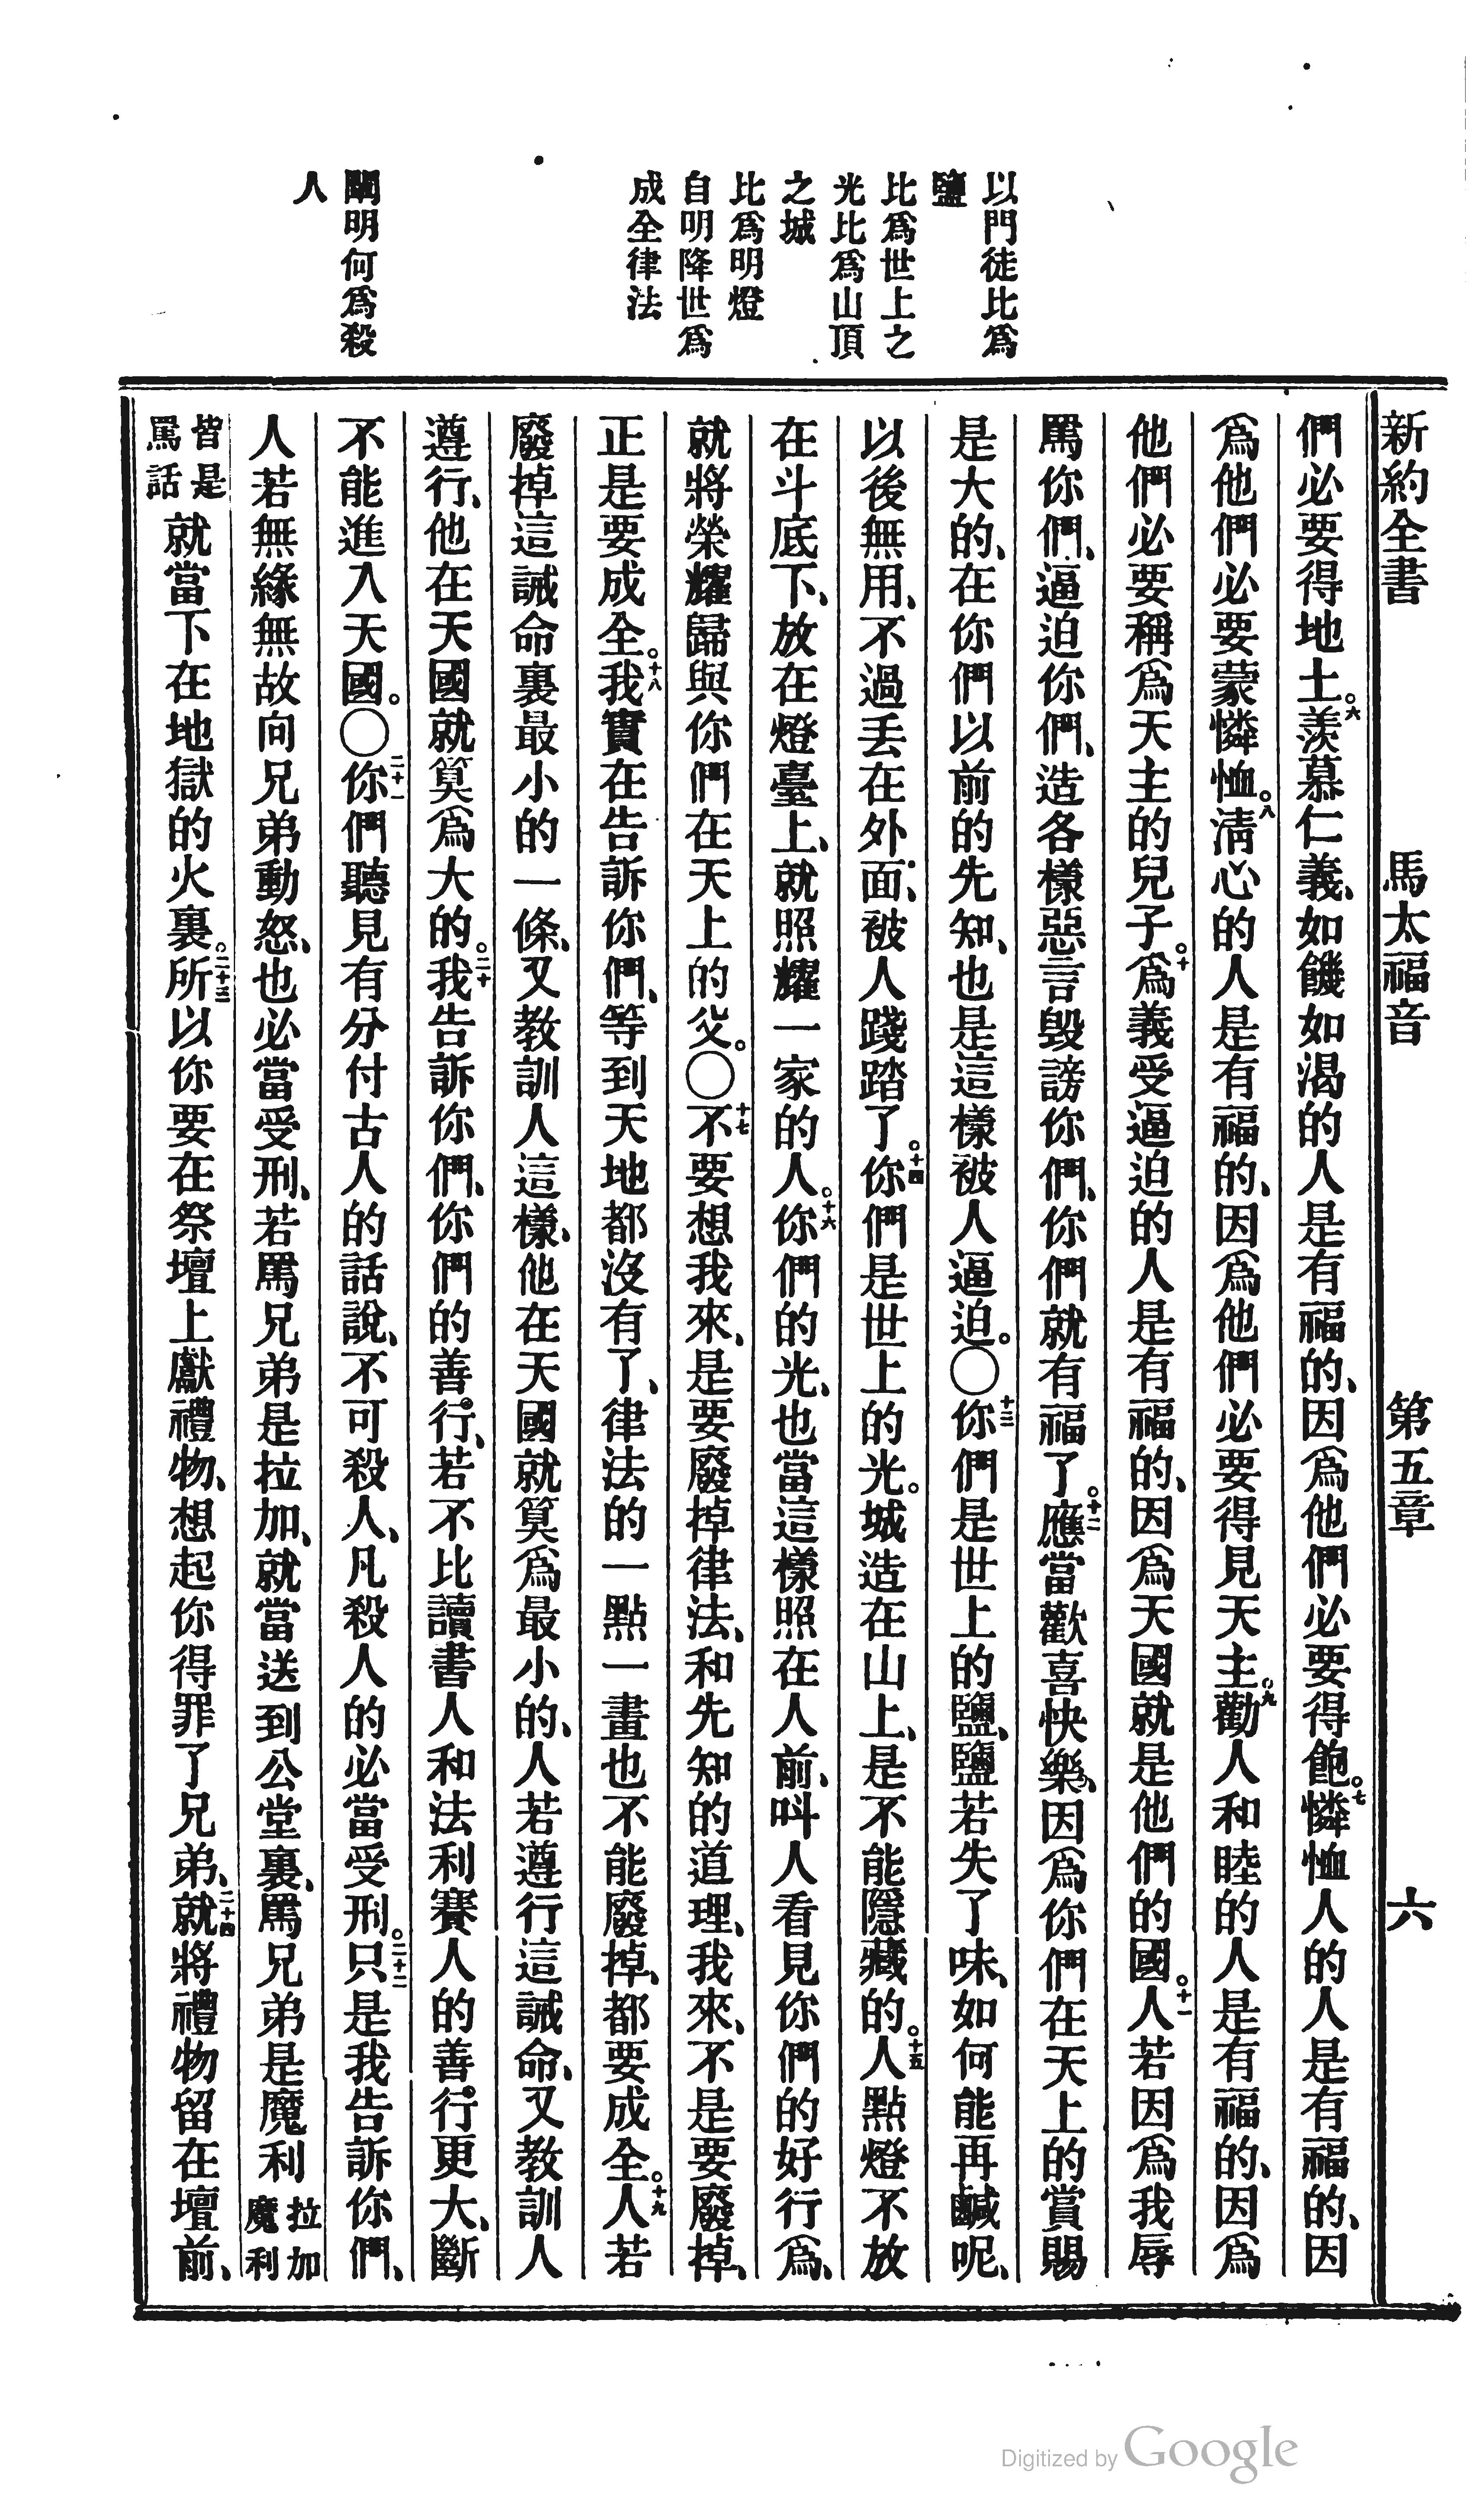 新約全書　馬太福音　第五章　六
以門徒比爲
鹽
比爲世上之
光比爲山頂
之城
比爲明燈
自明降世爲
成全律法
闡明何爲殺
人
們必要得地土。六羨慕仁義、如饑如渴的人是有福的、因爲他們必要得飽。七憐恤人的人是有福的、因
爲他們必要蒙憐恤。八淸心的人是有福的、因爲他們必要得見天主。九勸人和睦的人是有福的、因爲
他們必要稱爲天主的兒子。十爲義受逼迫的人是有福的、因爲天國就是他們的國。十一人若因爲我辱
罵你們、逼迫你們、造各樣惡言毀謗你們、你們就有福了。十二應當歡喜快樂、因爲你們在天上的賞賜
是大的、在你們以前的先知、也是這樣被人逼迫。〇十三你們是世上的鹽、鹽若失了味、如何能再鹹呢、
以後無用、不過丟在外面、被人踐踏了。十四你們是世上的光。城造在山上、是不能隱藏的。十五人點燈不放
在斗底下、放在燈臺上、就照耀一家的人。十六你們的光、也當這樣照在人前、呌人看見你們的好行爲、
就將榮耀歸與你們在天上的父。〇十七不要想我來、是要廢掉律法、和先知的道理、我來、不是要廢掉、
正是要成全。十八我實在告訴你們、等到天地都沒有了、律法的一點一畫也不能廢掉、都要成全。十九人若
廢掉這誡命裏最小的一條、又教訓人這樣、他在天國就筭爲最小的、人若遵行這誡命、又教訓人
遵行、他在天國就筭爲大的。二十我告訴你們、你們的善行、若不比讀書人和法利賽人的善行更大、斷
不能進入天國。〇二十一你們聽見有分付古人的話說、不可殺人、凡殺人的必當受刑。二十二只是我告訴你們、
人若無緣無故向兄弟動怒、也必當受刑、若罵兄弟是拉加、就當送到公堂裏、罵兄弟是魔利拉加魔利
皆是罵話就當下在地獄的火裏。二十三所以你要在祭壇上獻禮物、想起你得罪了兄弟、二十四就將禮物留在壇前、
Digitized by Google